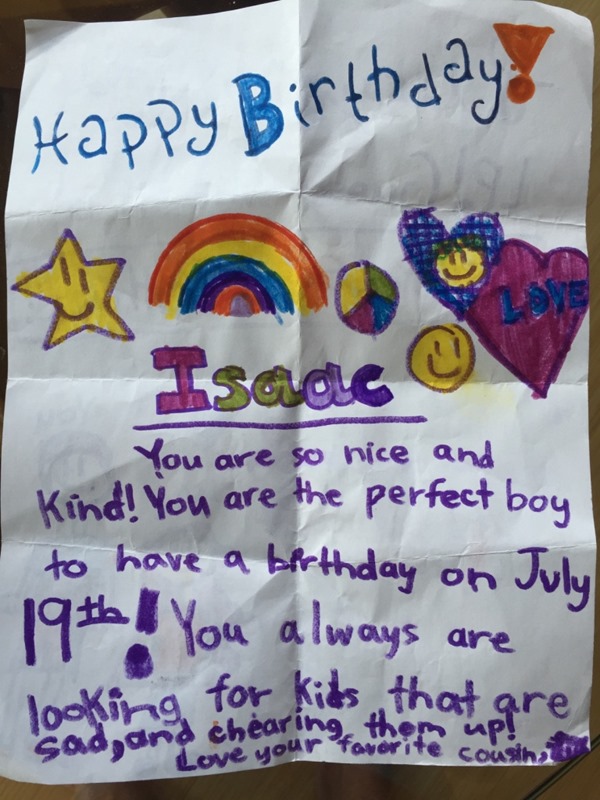 Happy Birthday!
LOVE
Isaac
You are so nice and
Kind! You are the perfect boy
to have a birthday on July
19th! You always are
looking for kids that are
sad, and chearing them up!
Love your favorite cousin,